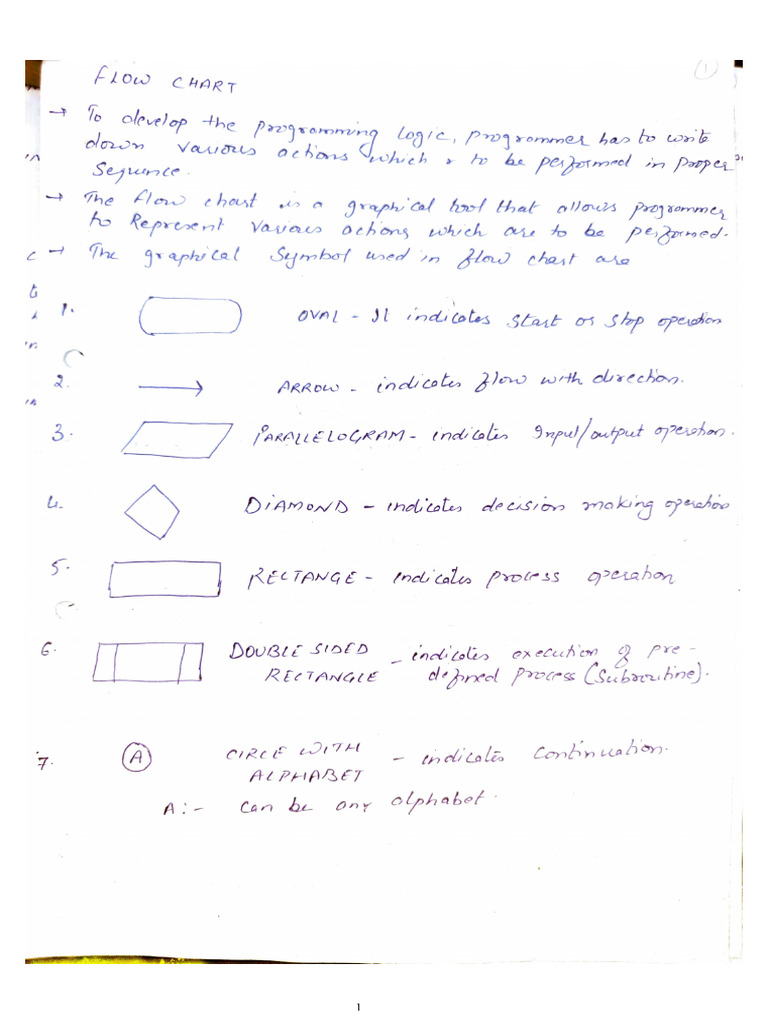 1
FLOW CHART
→ To develop the programming logic, programmer has to write
down various actions which r to be performed in proper
Sequence.
→ The flow chart is a graphical tool that allows programmer
to Represent various actions which are to be performed.
→ The graphical Symbol used in flow chart are
1. OVAL - It indicates Start or Stop operation
2. ARROW - indicates flow with direction.
3. PARALLELOGRAM - indicates Input/output operation.
4. DIAMOND - indicates decision making operation
5. RECTANGE - indicates process operation
6. DOUBLE SIDED - indicates execution of pre-
RECTANGLE defined process (Subroutine).
7. A CIRCLE WITH - indicates Continuation.
ALPHABET
A:- Can be any alphabet.
1